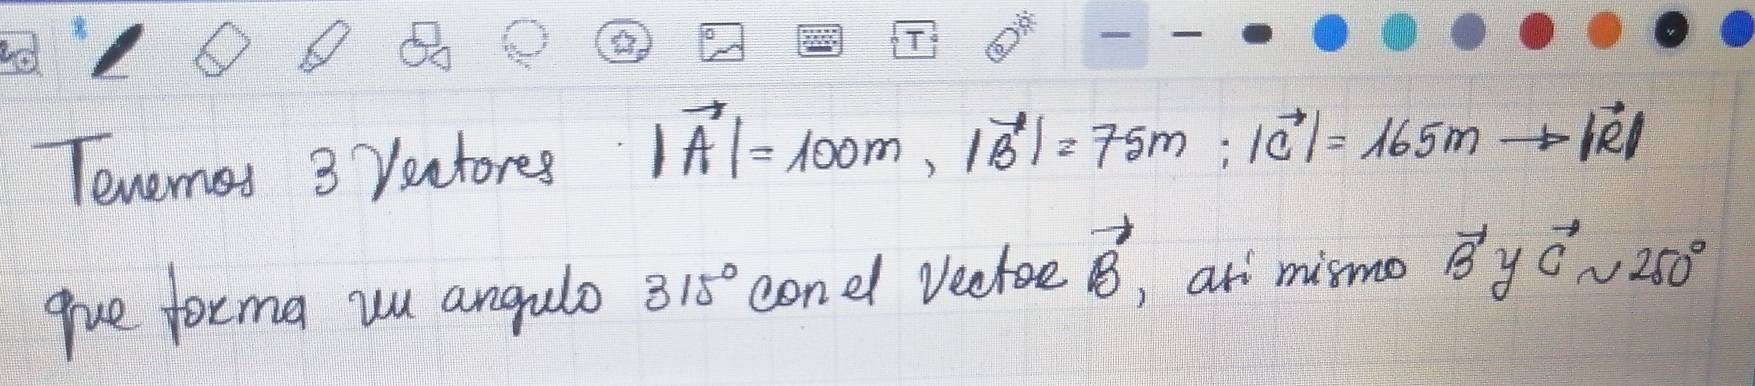 Tenemos 3 Vectores |A⃗| = 100m, |B⃗| = 75m ; |C⃗| = 165m → |R⃗|
que forma un angulo 315° con el Vector B⃗, asi mismo B⃗ y C⃗ ~ 250°